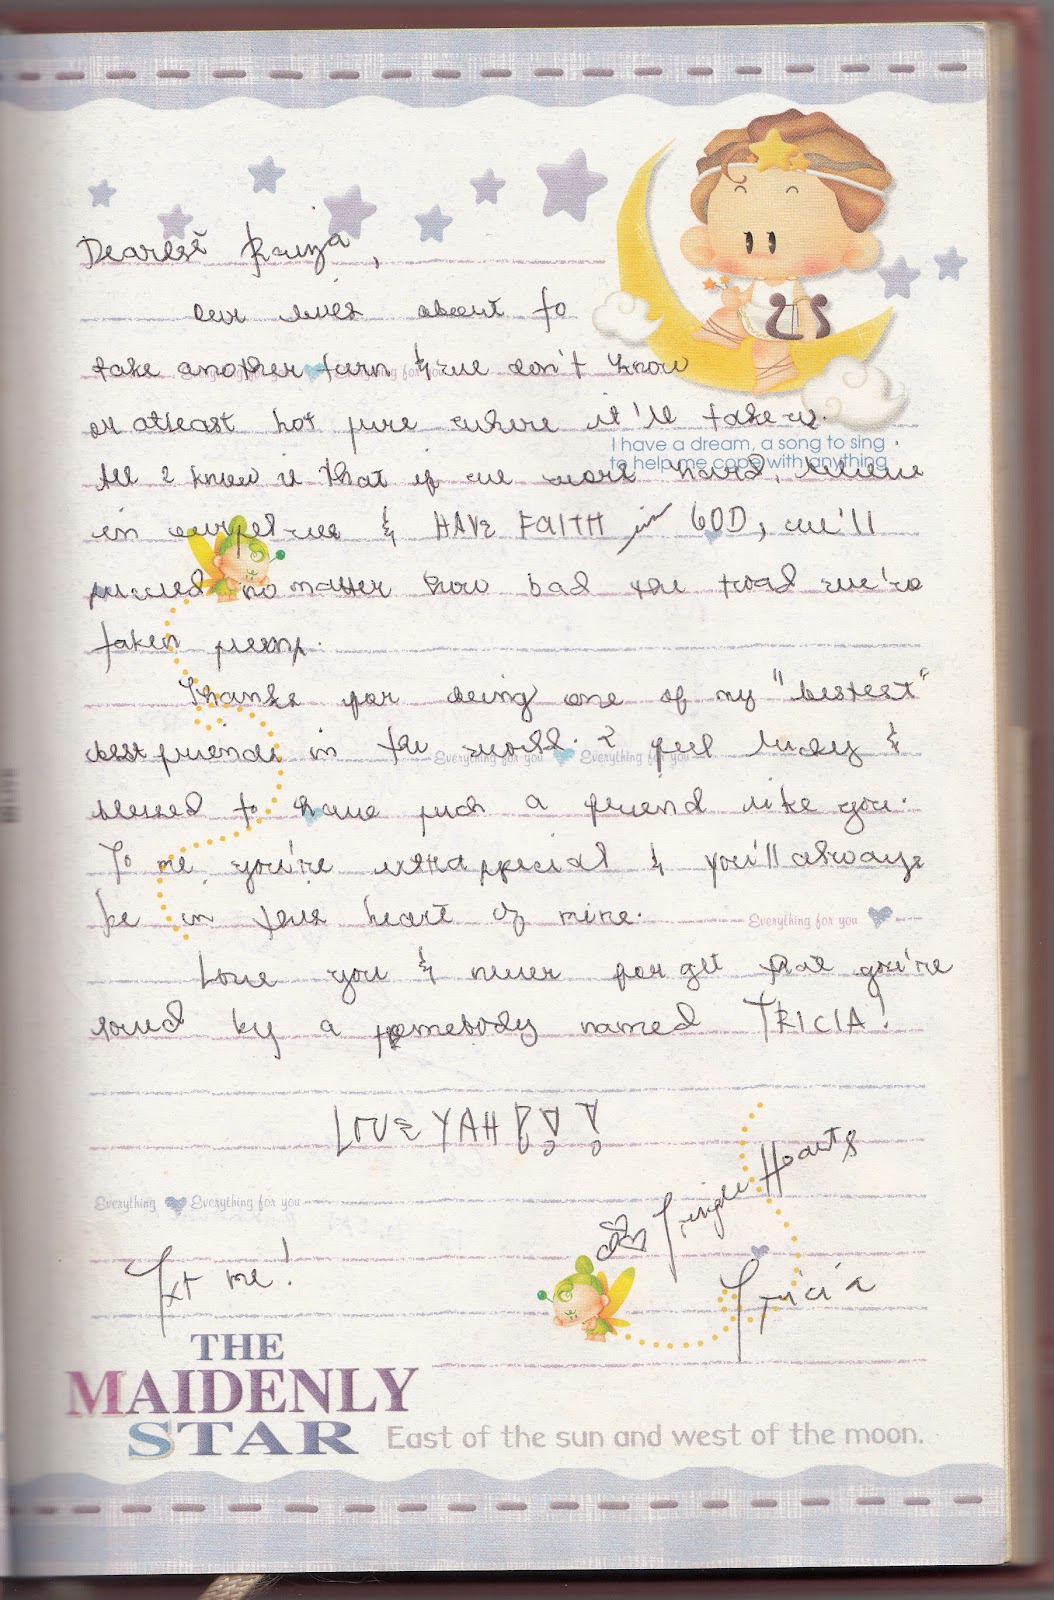 Dearest Raiza,
our lives about to
take another turn & we don't know
or atleast not sure where it'll take us.
I have a dream, a song to sing
to help me cope with anything
All I know is that if we work hard, believe
in ourselves & HAVE FAITH in GOD, we'll
succeed no matter how bad the road we're
taken seems.
Thanks for being one of my "bestest"
best friends in the world. I feel lucky &
Everything for you Everything for you
blessed to have such a friend like you.
To me, you're extra special & you'll always
be in this heart of mine.
Everything for you
Love you & never forget that you're
loved by a somebody named TRICIA!
LOVE YAH!!!
Everything Everything for you
Hearts
Txt me!
Tricia
THE
MAIDENLY
STAR
East of the sun and west of the moon.